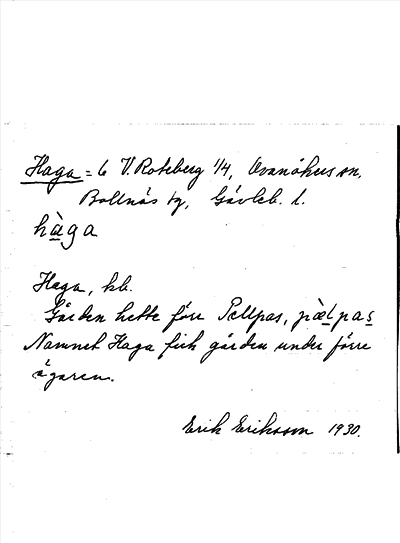 Haga = 6 V. Roteberg 1/4, Ovanåkers sn.
Bollnäs tg, Gävleb. l.
hàga
Haga, kb.
Gården hette förr Pellpas, pæ̀lpas
Namnet Haga fick gården under förre
ägaren.
Erik Eriksson 1930.